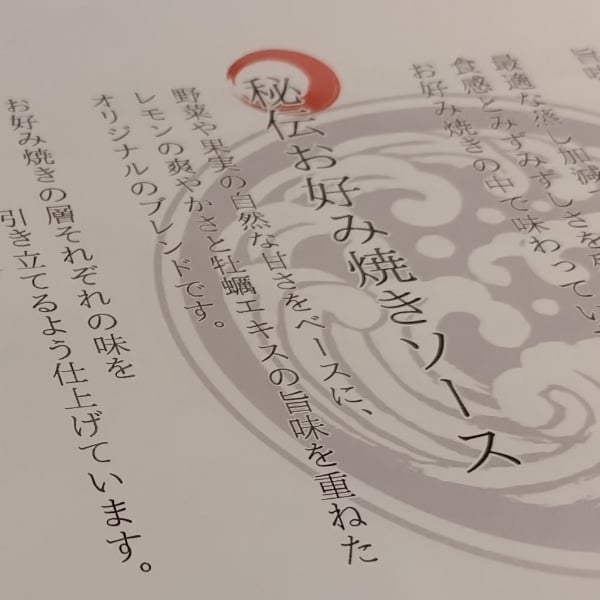 旨味
最適な蒸し加減
食感とみずみずしさを
お好み焼きの中で味わってい
秘伝お好み焼きソース
野菜や果実の自然な甘さをベースに、
レモンの爽やかさと牡蠣エキスの旨味を重ねた
オリジナルのブレンドです。
お好み焼きの層それぞれの味を
引き立てるよう仕上げています。